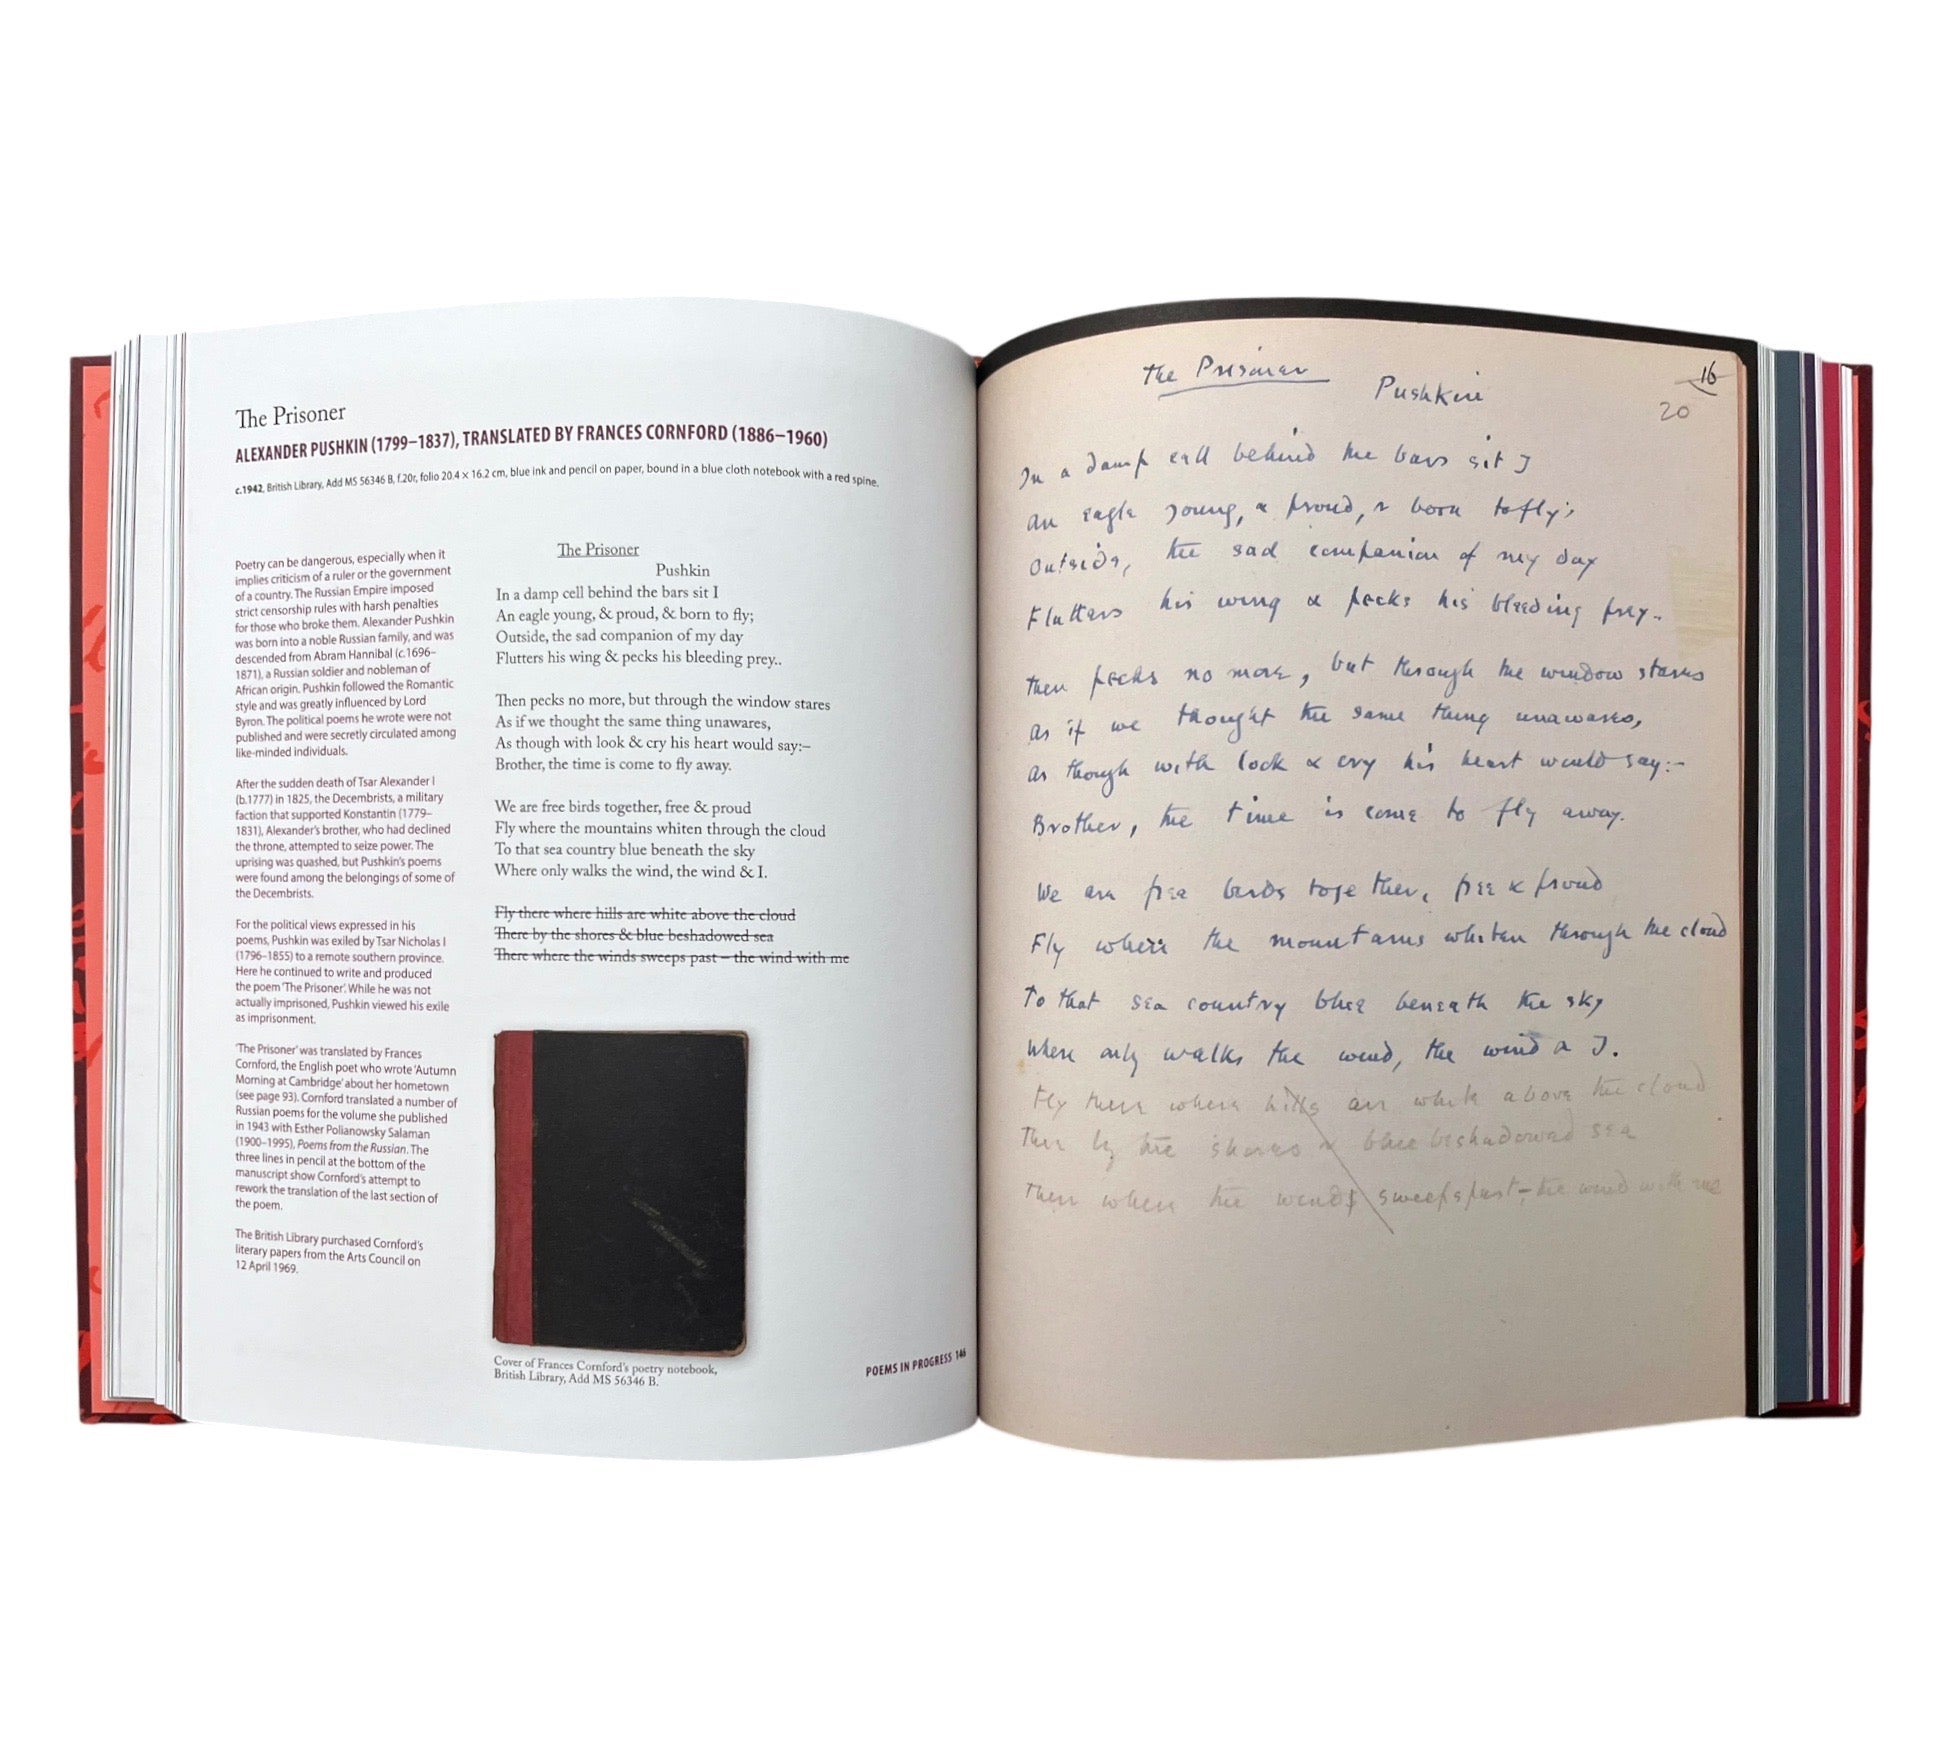 The Prisoner
ALEXANDER PUSHKIN (1799–1837), TRANSLATED BY FRANCES CORNFORD (1886–1960)
c.1942, British Library, Add MS 56346 B, f.20r, folio 20.4 × 16.2 cm, blue ink and pencil on paper, bound in a blue cloth notebook with a red spine.
Poetry can be dangerous, especially when it
implies criticism of a ruler or the government
of a country. The Russian Empire imposed
strict censorship rules with harsh penalties
for those who broke them. Alexander Pushkin
was born into a noble Russian family, and was
descended from Abram Hannibal (c.1696–
1871), a Russian soldier and nobleman of
African origin. Pushkin followed the Romantic
style and was greatly influenced by Lord
Byron. The political poems he wrote were not
published and were secretly circulated among
like-minded individuals.
After the sudden death of Tsar Alexander I
(b.1777) in 1825, the Decembrists, a military
faction that supported Konstantin (1779–
1831), Alexander's brother, who had declined
the throne, attempted to seize power. The
uprising was quashed, but Pushkin's poems
were found among the belongings of some of
the Decembrists.
For the political views expressed in his
poems, Pushkin was exiled by Tsar Nicholas I
(1796–1855) to a remote southern province.
Here he continued to write and produced
the poem 'The Prisoner'. While he was not
actually imprisoned, Pushkin viewed his exile
as imprisonment.
'The Prisoner' was translated by Frances
Cornford, the English poet who wrote 'Autumn
Morning at Cambridge' about her hometown
(see page 93). Cornford translated a number of
Russian poems for the volume she published
in 1943 with Esther Polianowsky Salaman
(1900–1995), Poems from the Russian. The
three lines in pencil at the bottom of the
manuscript show Cornford's attempt to
rework the translation of the last section of
the poem.
The British Library purchased Cornford's
literary papers from the Arts Council on
12 April 1969.
The Prisoner
Pushkin
In a damp cell behind the bars sit I
An eagle young, & proud, & born to fly;
Outside, the sad companion of my day
Flutters his wing & pecks his bleeding prey..
Then pecks no more, but through the window stares
As if we thought the same thing unawares,
As though with look & cry his heart would say:–
Brother, the time is come to fly away.
We are free birds together, free & proud
Fly where the mountains whiten through the cloud
To that sea country blue beneath the sky
Where only walks the wind, the wind & I.
Fly there where hills are white above the cloud
There by the shores & blue beshadowed sea
There where the winds sweeps past – the wind with me
Cover of Frances Cornford's poetry notebook,
British Library, Add MS 56346 B.
POEMS IN PROGRESS 146
The Prisoner
Pushkin
16
20
In a damp cell behind the bars sit I
An eagle young, & proud, & born to fly;
Outside, the sad companion of my day
Flutters his wing & pecks his bleeding prey..
Then pecks no more, but through the window stares
As if we thought the same thing unawares,
As though with look & cry his heart would say:-
Brother, the time is come to fly away.
We are free birds together, free & proud
Fly where the mountains whiten through the cloud
To that sea country blue beneath the sky
Where only walks the wind, the wind & I.
Fly there where hills are white above the cloud
There by the shores & blue beshadowed sea
There where the winds sweeps past – the wind with me